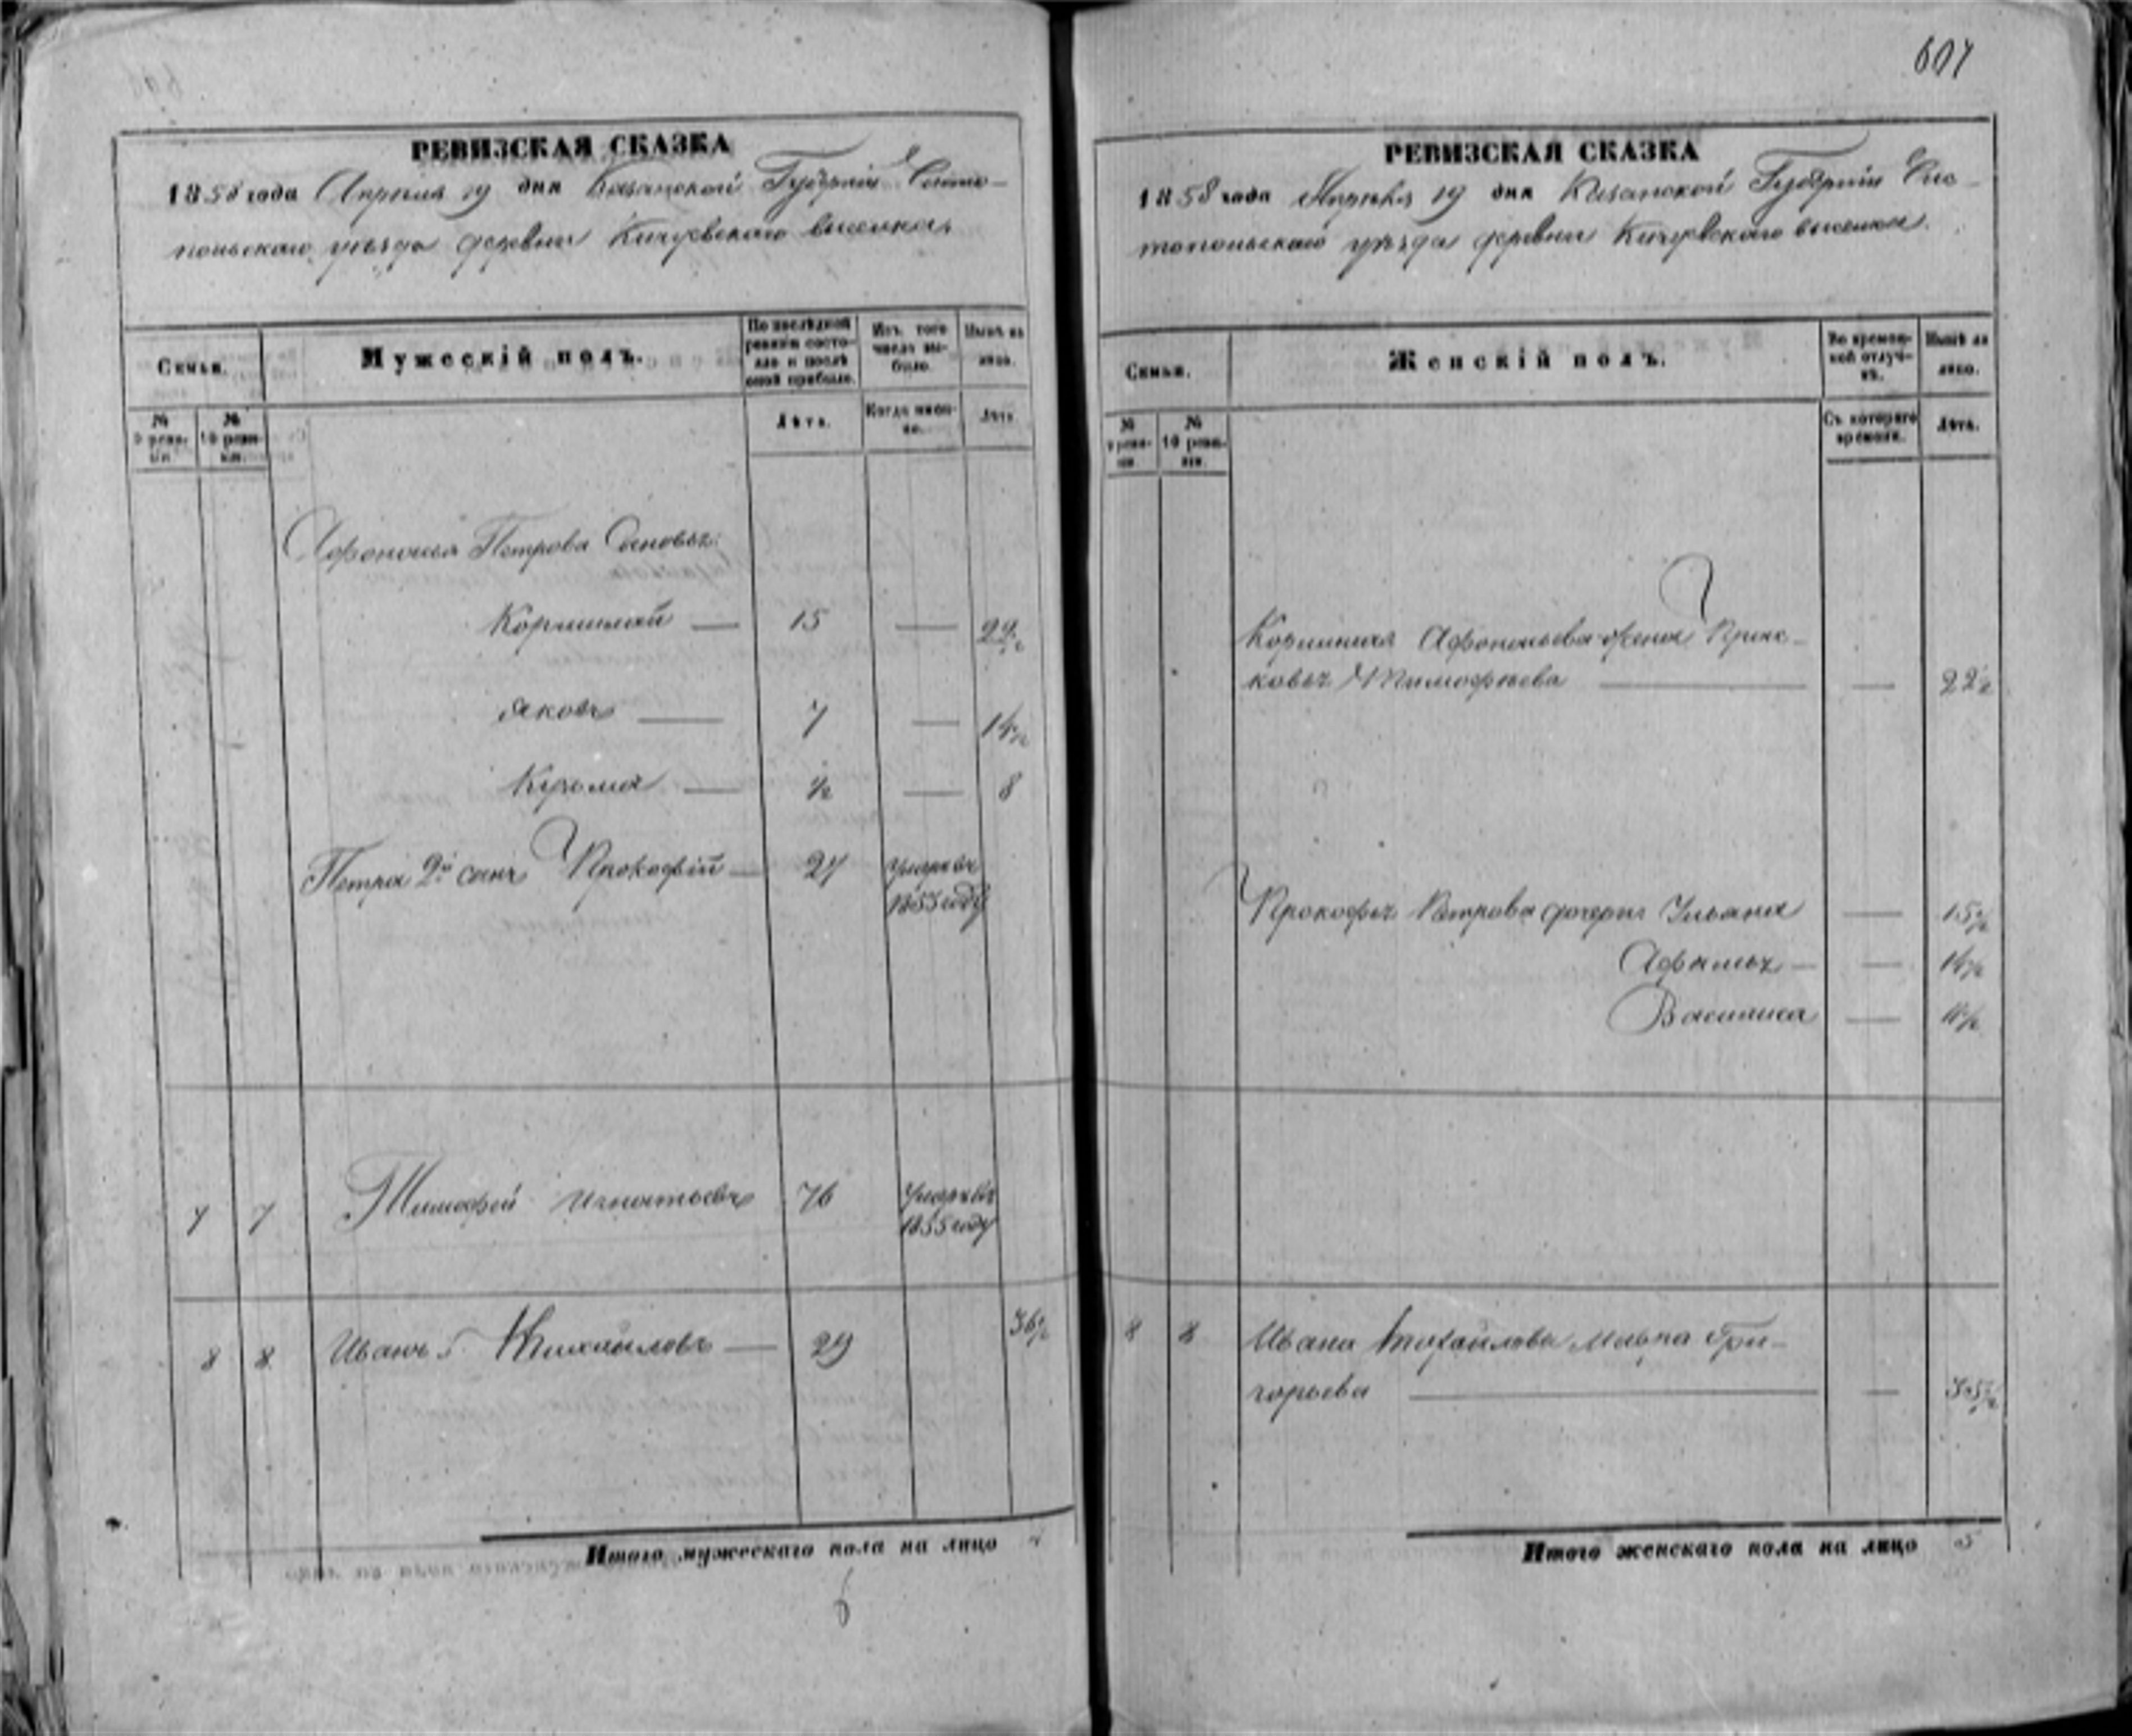 607
РЕВИЗСКАЯ СКАЗКА
1858 года Апреля 19 дня Казанской Губерніи Чисто-
польскаго уѣзда деревни Кичуевскаго выселка
Семьи.
Мужескій полъ.
По послѣдней ревизіи состояло и послѣ оной прибыло.
Изъ того числа выбыло.
Нынѣ на лицо.
№ 9 ревизіи.
№ 10 ревизіи.
Лѣта.
Когда именно.
Лѣта.
Афонасья Петрова Сыновья:
Корнилай — 15 —
Яковъ — 7 — 14½
Кузьма — ½ — 8
Петра 2й сынъ Прокофій — 27 умеръ въ
1855 году
7 7 Тимофей Игнатьевъ 76 Умеръ въ
1855 году
8 8 Иванъ Михайловъ — 29 36½
Итого мужескаго пола на лицо 4
6
РЕВИЗСКАЯ СКАЗКА
1858 года Апрѣля 19 дня Казанской Губерніи Чис-
топольскаго уѣзда деревни Кичуевскаго выселка.
Семьи.
Женскій полъ.
Во временной отлучкѣ.
Нынѣ на лицо.
№ 9 ревизіи.
№ 10 ревизіи.
Съ котораго времени.
Лѣта.
Афонасьева жена
Тимофѣева — — 22½
Прокофья Петрова дочери Ульяна — 15½
— — 14½
Василиса — 11½
8 8 Ивана Михайлова Марѳа Гри-
горьева — — 35½
Итого женскаго пола на лицо 5